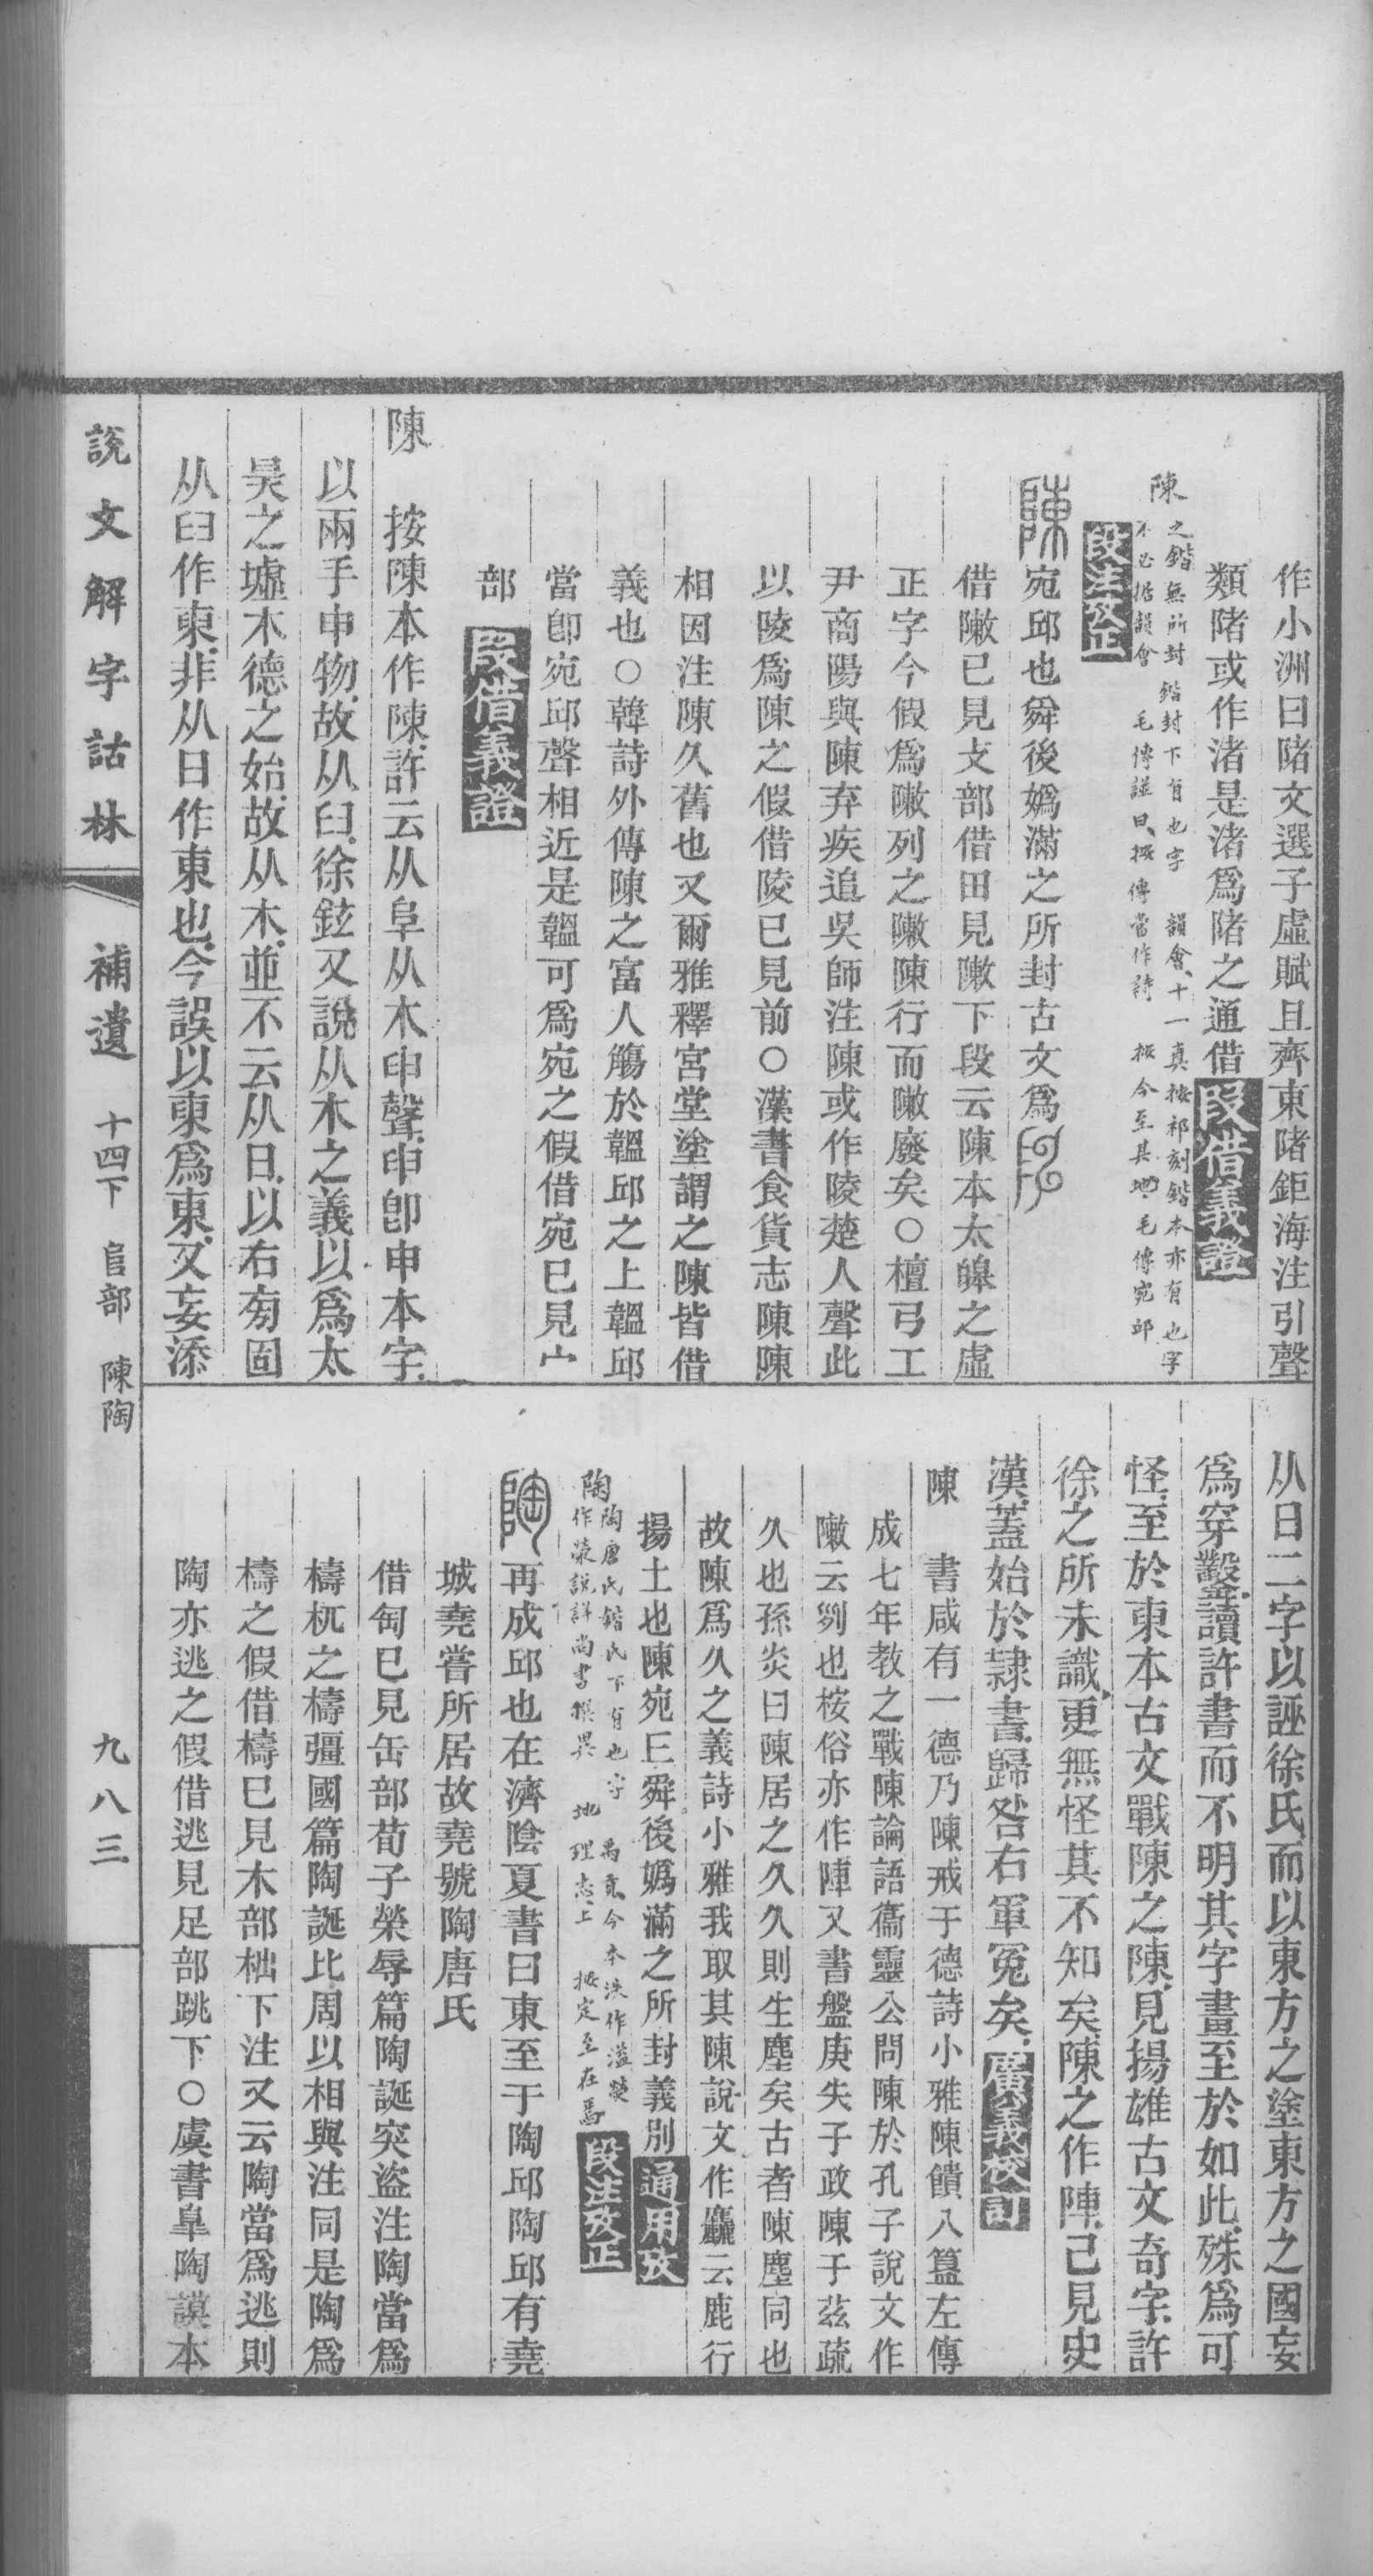 作小洲曰陼文選子虛賦且齊東陼鉅海注引聲
類陼或作渚是渚爲陼之通借叚借義證
陳 之鍇無所封 鍇封下有也字 韻會十一真按祁刻鍇本亦有也字
不必據韻會 毛傳譜曰按傳當作詩 按今至其地毛傳宛邱
段注攷正
陳宛邱也舜後嬀滿之所封古文爲
借敶已見攴部借田見敶下段云陳本太皞之虛
正字今假爲敶列之敶陳行而敶廢矣○檀弓工
尹商陽與陳弃疾追吳師注陳或作陵楚人聲此
以陵爲陳之假借陵已見前○漢書食貨志陳陳
相因注陳久舊也又爾雅釋宮堂塗謂之陳皆借
義也○韓詩外傳陳之富人觴於韞邱之上韞邱
當卽宛邱聲相近是韞可爲宛之假借宛已見宀
部 叚借義證
陳 按陳本作陳許云从阜从木申聲申卽申本字
以兩手申物故从臼徐鉉又說从木之義以爲太
昊之墟木德之始故从木並不云从日以右㫄固
从臼作東非从日作東也今誤以東爲東又妄添
从日二字以誣徐氏而以東方之塗東方之國妄
爲穿鑿讀許書而不明其字畫至於如此殊爲可
怪至於東本古文戰陳之陳見揚雄古文奇字許
徐之所未識更無怪其不知矣陳之作陣已見史
漢蓋始於隸書歸咎右軍冤矣廣義校訂
陳 書咸有一德乃陳戒于德詩小雅陳饋八簋左傳
成七年教之戰陳論語衞靈公問陳於孔子說文作
敶云列也桉俗亦作陣又書盤庚失于政陳于茲疏
久也孫炎曰陳居之久久則生塵矣古者陳塵同也
故陳爲久之義詩小雅我取其陳說文作麤云鹿行
揚土也陳宛丘舜後嬀滿之所封義別通用攷
陶 陶唐氏鍇氏下有也字 禹貢今本泆作溢滎
作滎說詳尚書撰異 地理志上 按定至在焉 段注攷正
陶再成邱也在濟陰夏書曰東至于陶邱陶邱有堯
城堯嘗所居故堯號陶唐氏
借匋已見缶部荀子榮辱篇陶誕突盜注陶當爲
檮杌之檮彊國篇陶誕比周以相與注同是陶爲
檮之假借檮已見木部柮下注又云陶當爲逃則
陶亦逃之假借逃見足部跳下○虞書皐陶謨本
說文解字詁林 補遺 十四下 𨸏部 陳陶 九八三